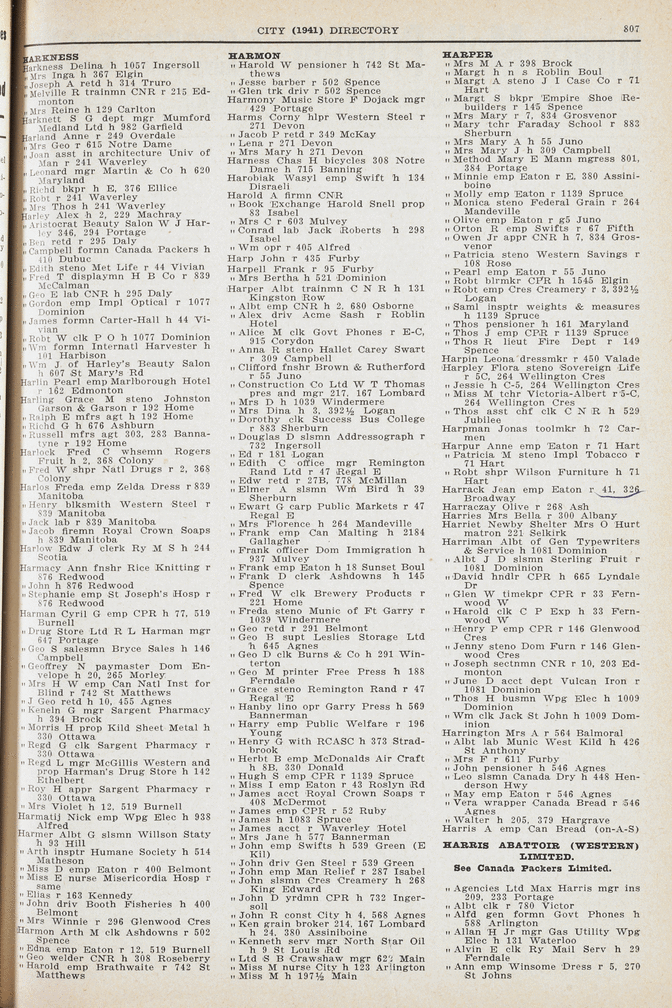 CITY (1941) DIRECTORY 807
HARKNESS
Harkness Delina h 1057 Ingersoll
" Mrs Inga h 367 Elgin
" Joseph A retd h 314 Truro
" Melville R trainmn CNR r 215 Ed-
monton
" Mrs Reine h 129 Carlton
Harknett S G dept mgr Mumford
Medland Ltd h 982 Garfield
Harland Anne r 249 Overdale
" Mrs Geo r 615 Notre Dame
" Joan asst in architecture Univ of
Man r 241 Waverley
" Leonard mgr Martin & Co h 620
Maryland
" Richd bkpr h E, 376 Ellice
" Robt r 241 Waverley
" Mrs Thos h 241 Waverley
Harley Alex h 2, 229 Machray
" Aristocrat Beauty Salon W J Har-
ley 346, 294 Portage
" Ben retd r 295 Daly
" Campbell formn Canada Packers h
410 Dubuc
" Edith steno Met Life r 44 Vivian
" Fred T displaymn H B Co r 839
McCalman
" Geo E lab CNR h 295 Daly
" Gordon emp Impl Optical r 1077
Dominion
" James formn Carter-Hall h 44 Vi-
vian
" Robt W clk P O h 1077 Dominion
" Wm formn Internatl Harvester h
101 Harbison
" Wm J of Harley's Beauty Salon
h 607 St Mary's Rd
Harlin Pearl emp Marlborough Hotel
r 162 Edmonton
Harling Grace M steno Johnston
Garson & Garson r 192 Home
" Ralph E mfrs agt h 192 Home
" Richd G h 676 Ashburn
" Russell mfrs agt 303, 283 Banna-
tyne r 192 Home
Harlock Fred C whsemn Rogers
Fruit h 2, 368 Colony
" Fred W shpr Natl Drugs r 2, 368
Colony
Harlos Freda emp Zelda Dress r 839
Manitoba
" Henry blksmith Western Steel r
839 Manitoba
" Jack lab r 839 Manitoba
" Jacob firemn Royal Crown Soaps
h 839 Manitoba
Harlow Edw J clerk Ry M S h 244
Scotia
Harmacy Ann fnshr Rice Knitting r
876 Redwood
" John h 876 Redwood
" Stephanie emp St Joseph's Hosp r
876 Redwood
Harman Cyril G emp CPR h 77, 519
Burnell
" Drug Store Ltd R L Harman mgr
647 Portage
" Geo S salesmn Bryce Sales h 146
Campbell
" Geoffrey N paymaster Dom En-
velope h 20, 265 Morley
" Mrs H W emp Can Natl Inst for
Blind r 742 St Matthews
" J Geo retd h 10, 455 Agnes
" Keneln G mgr Sargent Pharmacy
h 394 Brock
" Morris H prop Kild Sheet Metal h
330 Ottawa
" Regd G clk Sargent Pharmacy r
330 Ottawa
" Regd L mgr McGillis Western and
prop Harman's Drug Store h 142
Ethelbert
" Roy H appr Sargent Pharmacy r
330 Ottawa
" Mrs Violet h 12, 519 Burnell
Harmatij Nick emp Wpg Elec h 938
Alfred
Harmer Albt G slsmn Willson Staty
h 93 Hill
" Arth insptr Humane Society h 514
Matheson
" Miss D emp Eaton r 400 Belmont
" Miss E nurse Misericordia Hosp r
same
" Elias r 163 Kennedy
" John driv Booth Fisheries h 400
Belmont
" Mrs Winnie r 296 Glenwood Cres
Harmon Arth M clk Ashdowns r 502
Spence
" Edna emp Eaton r 12, 519 Burnell
" Geo welder CNR h 308 Roseberry
" Harold emp Brathwaite r 742 St
Matthews
HARMON
" Harold W pensioner h 742 St Ma-
thews
" Jesse barber r 502 Spence
" Glen trk driv r 502 Spence
Harmony Music Store F Dojack mgr
429 Portage
Harms Corny hlpr Western Steel r
271 Devon
" Jacob P retd r 349 McKay
" Lena r 271 Devon
" Mrs Mary h 271 Devon
Harness Chas H bicycles 308 Notre
Dame h 715 Banning
Harobiak Wasyl emp Swift h 134
Disraeli
Harold A firmn CNR
" Book Exchange Harold Snell prop
83 Isabel
" Mrs C r 603 Mulvey
" Conrad lab Jack Roberts h 298
Isabel
" Wm opr r 405 Alfred
Harp John r 435 Furby
Harpell Frank r 95 Furby
" Mrs Bertha h 521 Dominion
Harper Albt trainmn C N R h 131
Kingston Row
" Albt emp CNR h 2, 680 Osborne
" Alex driv Acme Sash r Roblin
Hotel
" Alice M clk Govt Phones r E-C,
915 Corydon
" Anna R steno Hallet Carey Swart
r 309 Campbell
" Clifford fnshr Brown & Rutherford
r 55 Juno
" Construction Co Ltd W T Thomas
pres and mgr 217, 167 Lombard
" Mrs D h 1039 Windermere
" Mrs Dina h 3, 392½ Logan
" Dorothy clk Success Bus College
r 883 Sherburn
" Douglas D slsmn Addressograph r
732 Ingersoll
" Ed r 181 Logan
" Edith C office mgr Remington
Rand Ltd r 47 Regal E
" Edw retd r 27B, 778 McMillan
" Elmer A slsmn Wm Bird h 39
Sherburn
" Ewart G carp Public Markets r 47
Regal E
" Mrs Florence h 264 Mandeville
" Frank emp Can Malting h 2184
Gallagher
" Frank officer Dom Immigration h
937 Mulvey
" Frank emp Eaton h 18 Sunset Boul
" Frank D clerk Ashdowns h 145
Spence
" Fred W clk Brewery Products r
221 Home
" Freda steno Music of Ft Garry r
1039 Windermere
" Geo retd r 291 Belmont
" Geo B supt Leslies Storage Ltd
h 645 Agnes
" Geo D clk Burns & Co h 291 Win-
terton
" Geo M printer Free Press h 188
Ferndale
" Grace steno Remington Rand r 47
Regal E
" Hanby lino opr Garry Press h 569
Bannerman
" Harry emp Public Welfare r 196
Young
" Henry G with RCASC h 373 Strad-
brook
" Herbt B emp McDonalds Air Craft
h 8B, 330 Donald
" Hugh S emp CPR r 1139 Spruce
" Miss I emp Eaton r 43 Roslyn Rd
" James acct Royal Crown Soaps r
408 McDermot
" James emp CPR r 52 Ruby
" James h 1083 Spruce
" James acct r Waverley Hotel
" Mrs Jane h 577 Bannerman
" John emp Swifts h 539 Green (E
Kil)
" John driv Gen Steel r 539 Green
" John emp Man Relief r 287 Isabel
" John slsmn Cres Creamery h 268
King Edward
" John D yrdmn CPR h 732 Inger-
soll
" John R const City h 4, 568 Agnes
" Ken grain broker 214, 167 Lombard
h 24, 380 Assiniboine
" Kenneth serv mgr North Star Oil
h 9 St Louis Rd
" Ltd S B Crawshaw mgr 622 Main
" Miss M nurse City h 123 Arlington
" Miss M h 197½ Main
HARPER
" Mrs M A r 398 Brock
" Margt h n s Roblin Boul
" Margt A steno J I Case Co r 71
Hart
" Margt S bkpr Empire Shoe Re-
builders r 145 Spence
" Mrs Mary r 7, 834 Grosvenor
" Mary tchr Faraday School r 883
Sherburn
" Mrs Mary A h 55 Juno
" Mrs Mary J h 309 Campbell
" Method Mary E Mann mgress 801,
384 Portage
" Minnie emp Eaton r E, 380 Assini-
boine
" Molly emp Eaton r 1139 Spruce
" Monica steno Federal Grain r 264
Mandeville
" Olive emp Eaton r g5 Juno
" Orton R emp Swifts r 67 Fifth
" Owen Jr appr CNR h 7, 834 Gros-
venor
" Patricia steno Western Savings r
108 Rose
" Pearl emp Eaton r 55 Juno
" Robt blrmkr CPR h 1545 Elgin
" Robt emp Cres Creamery r 3, 392½
Logan
" Saml insptr weights & measures
h 1139 Spruce
" Thos pensioner h 161 Maryland
" Thos J emp CPR r 1139 Spruce
" Thos R lieut Fire Dept r 149
Spence
Harpin Leona dressmkr r 450 Valade
Harpley Flora steno Sovereign Life
r 5C, 264 Wellington Cres
" Jessie h C-5, 264 Wellington Cres
" Miss M tchr Victoria-Albert r 5-C,
264 Wellington Cres
" Thos asst chf clk C N R h 529
Jubilee
Harpman Jonas toolmkr h 72 Car-
men
Harpur Anne emp Eaton r 71 Hart
" Patricia M steno Impl Tobacco r
71 Hart
" Robt shpr Wilson Furniture h 71
Hart
Harrack Jean emp Eaton r 41, 326
Broadway
Harraczay Olive r 268 Ash
Harries Mrs Bella r 300 Albany
Harriet Newby Shelter Mrs O Hurt
matron 221 Selkirk
Harriman Albt of Gen Typewriters
& Service h 1081 Dominion
" Albt J D slsmn Sterling Fruit r
1081 Dominion
" David hndlr CPR h 665 Lyndale
Dr
" Glen W timekpr CPR r 33 Fern-
wood W
" Harold clk C P Exp h 33 Fern-
wood W
" Henry P emp CPR r 146 Glenwood
Cres
" Jenny steno Dom Furn r 146 Glen-
wood Cres
" Joseph sectnmn CNR r 10, 203 Ed-
monton
" June D acct dept Vulcan Iron r
1081 Dominion
" Thos H busmn Wpg Elec h 1009
Dominion
" Wm clk Jack St John h 1009 Dom-
inion
Harrington Mrs A r 564 Balmoral
" Albt lab Munic West Kild h 426
St Anthony
" Mrs F r 611 Furby
" John pensioner h 546 Agnes
" Leo slsmn Canada Dry h 448 Hen-
derson Hwy
" May emp Eaton r 546 Agnes
" Vera wrapper Canada Bread r 546
Agnes
" Walter h 205, 379 Hargrave
Harris A emp Can Bread (on-A-S)
HARRIS ABATTOIR (WESTERN)
LIMITED.
See Canada Packers Limited.
" Agencies Ltd Max Harris mgr ins
209, 233 Portage
" Albt clk r 780 Victor
" Alfd gen formn Govt Phones h
588 Arlington
" Allan H Jr mgr Gas Utility Wpg
Elec h 131 Waterloo
" Alvin E clk Ry Mail Serv h 29
Ferndale
" Ann emp Winsome Dress r 5, 270
St Johns